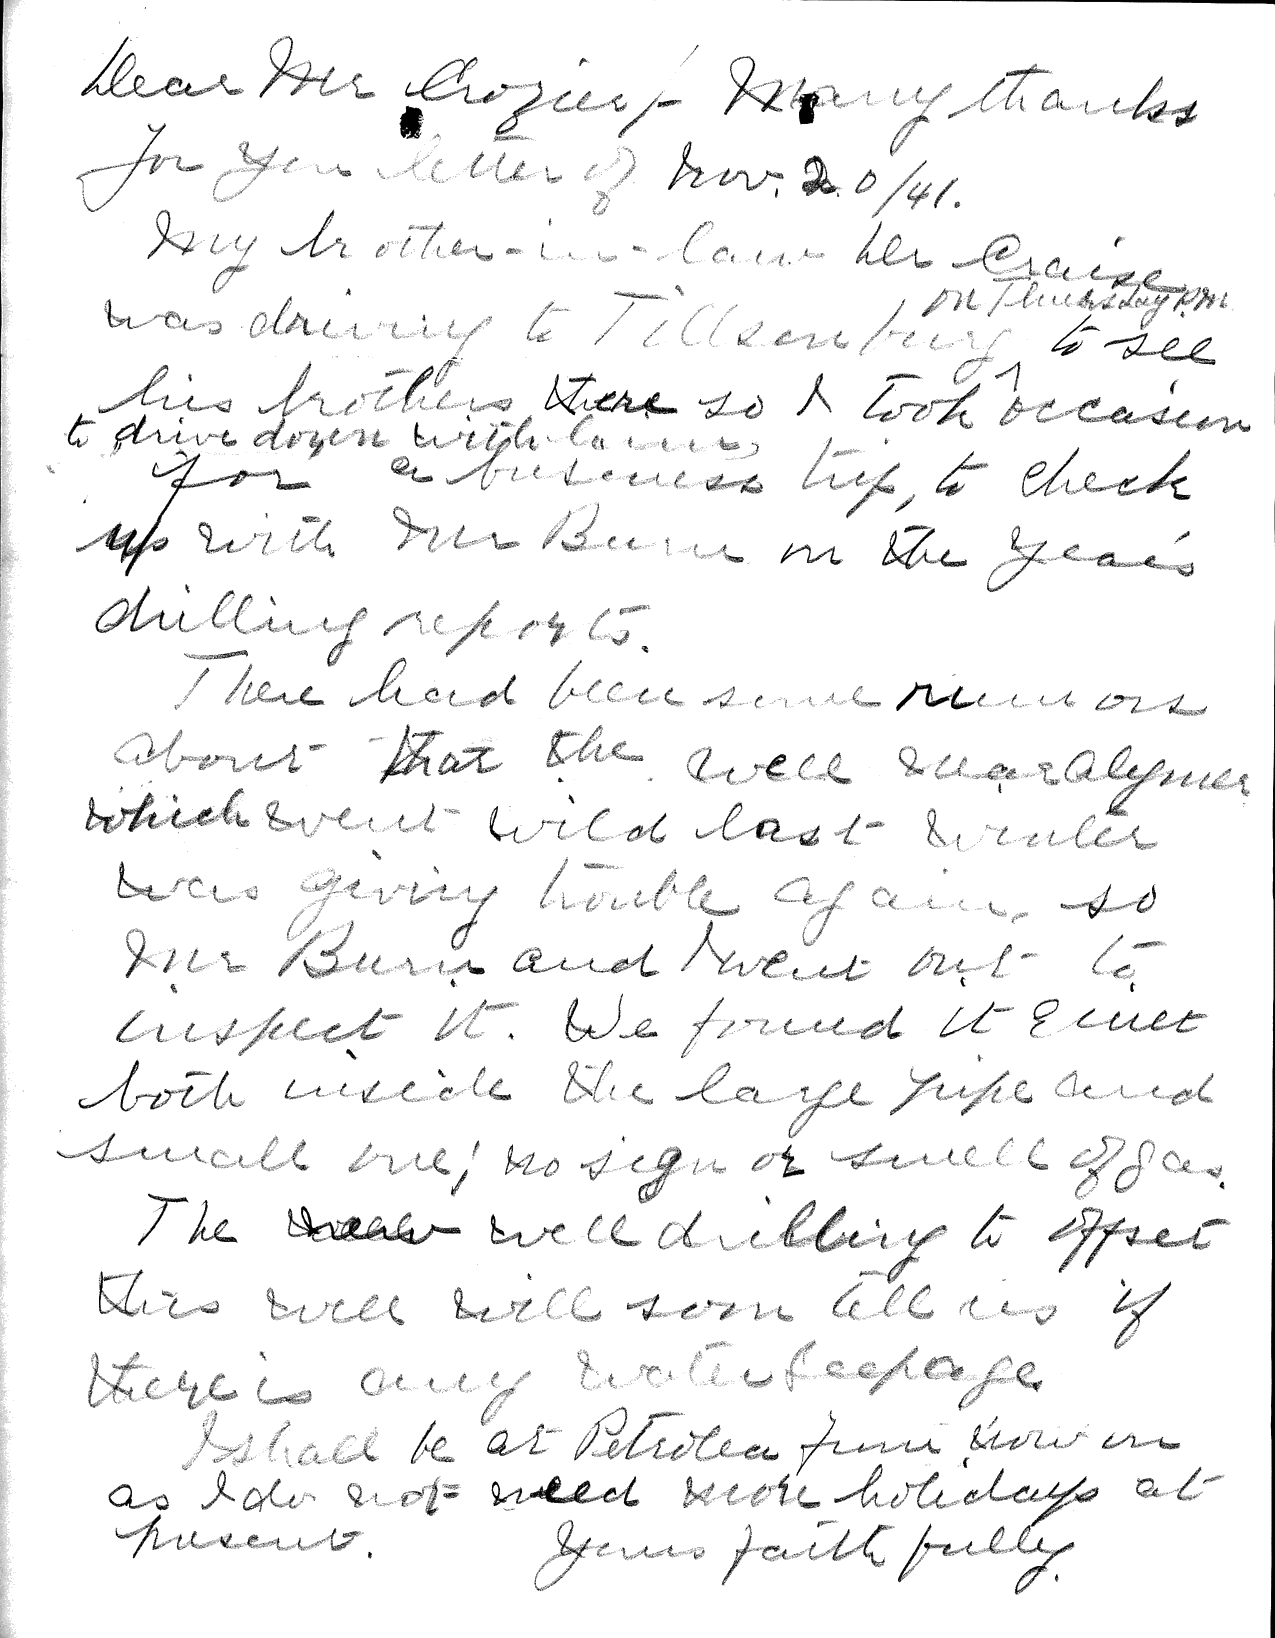 Dear Mr Crozier/- Many thanks
for your letter of Nov. 20/41.
My brother-in-law Dr Craise
on Thursday P.M
was driving to Tillsonburg to see
his brothers there so I took occasion
to drive down with him,
for a business trip, to check
up with Mr Burn on the year's
drilling reports.
There had been some rumors
about that the well near Alymer
which went wild last winter
was giving trouble again, so
Mr Burn and I went out to
inspect it. We found it quiet
both inside the large pipe and
small one; no sign or smell of gas.
The new well drilling to offset
this well will soon tell us if
there is any water seepage.
I shall be at Petrolea from now on
as I do not need more holidays at
present. Yours faithfully.